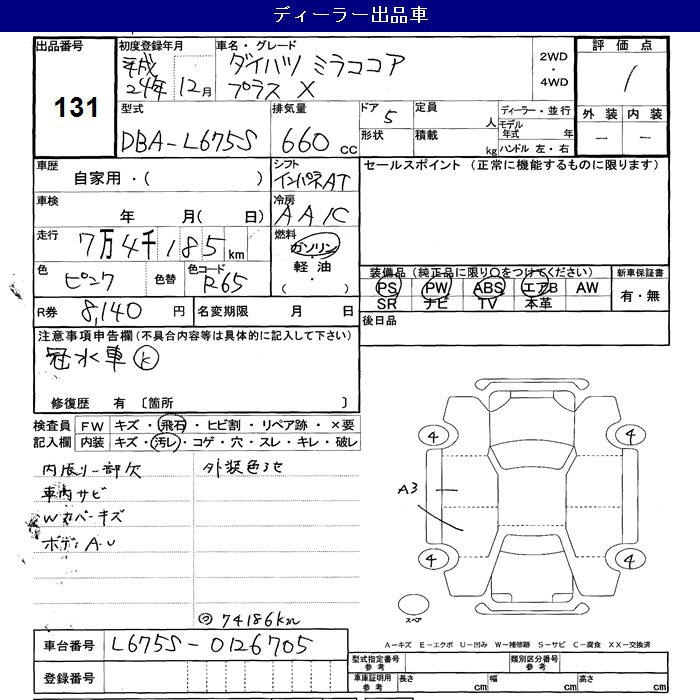 ディーラー出品車
出品番号 初度登録年月 車名・グレード 2WD・4WD 評価点
131 平成24年 12月 ダイハツ ミラココア プラス X 1
型式 排気量 ドア 定員 ディーラー・並行 外装 内装
DBA-L675S 660 cc 5 人 モデル年式 年 — —
形状 積載 kg ハンドル 左・右
車歴 シフト セールスポイント (正常に機能するものに限ります)
自家用・( ) インパネAT
車検 冷房
年 月( 日) AAC
走行 燃料
7万4千185km ガソリン・軽油・( )
色 色替 色コード 装備品(純正品に限り○をつけてください) 新車保証書
ピンク R65 PS PW ABS エアB AW 有・無
SR ナビ TV 本革
R券 8,140 円 名変期限 月 日 後日品
注意事項申告欄(不具合内容等は具体的に記入して下さい)
冠水車 K
修復歴 有 〔箇所 〕
検査員 FW キズ・飛石・ヒビ割・リペア跡・×要
記入欄 内装 キズ・汚レ・コゲ・穴・スレ・キレ・破レ
内張り一部欠 外装色アセ
車内サビ
Wカバーキズ
ボディA.U
4 4
A3
4 4
スペア
74186km
車台番号 L675S-0126705
A-キズ E-エクボ U-凹み W-補修跡 S-サビ C-腐食 XX-交換済
登録番号
型式指定番号 参考 類別区分番号 参考
車庫証明用 参考 長さ cm 幅 cm 高さ cm